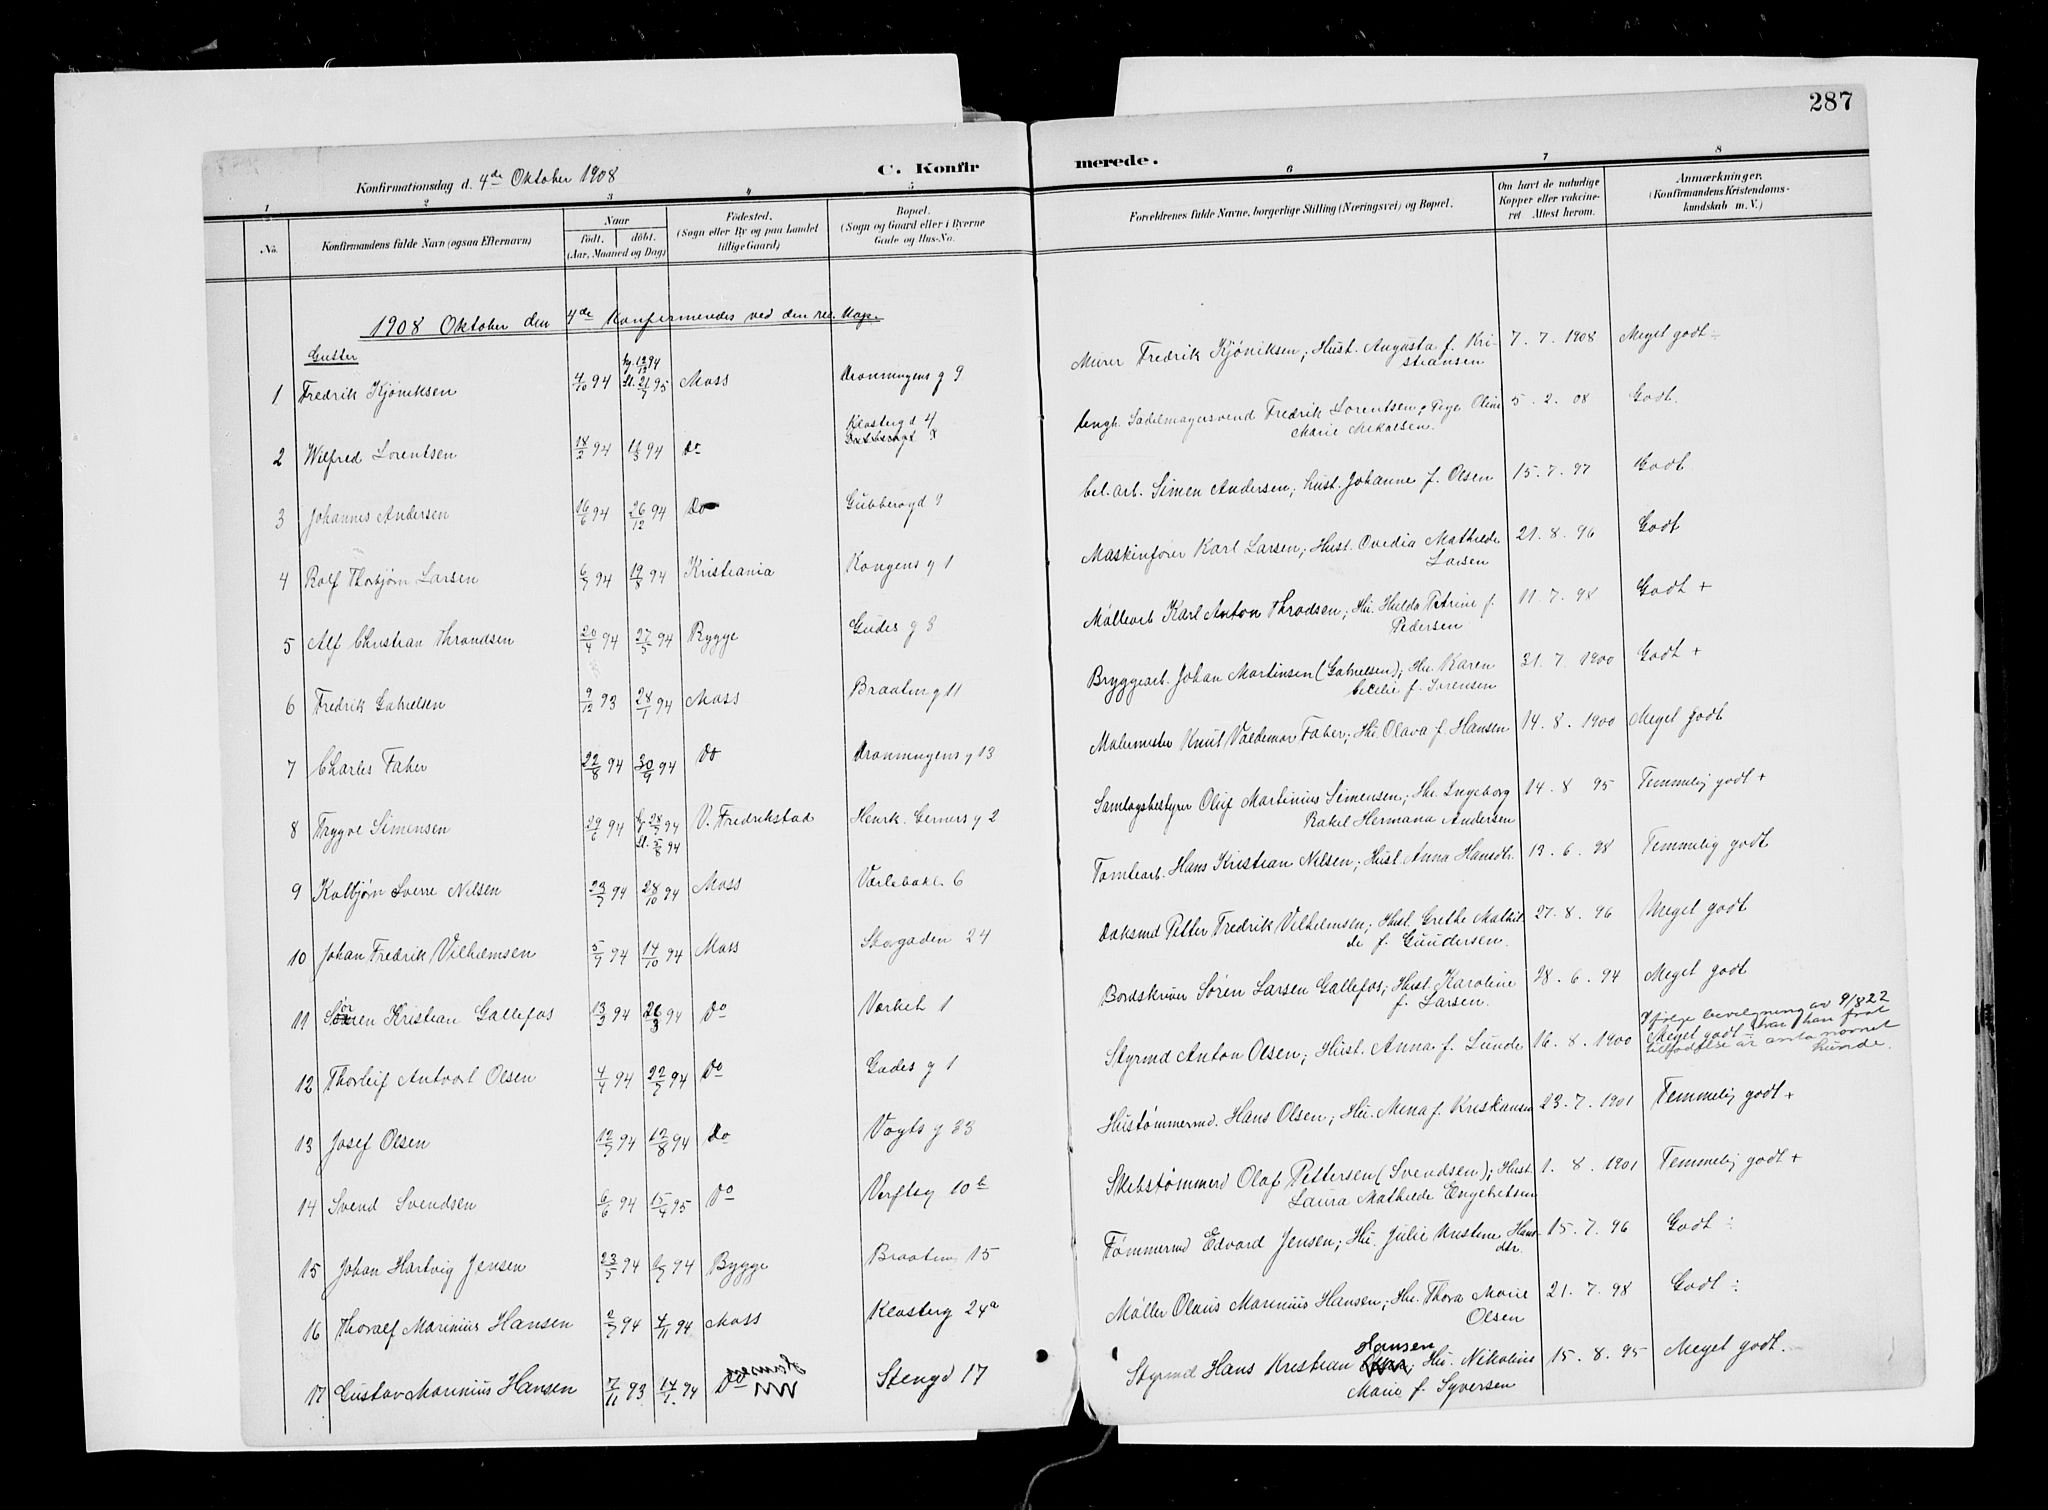 287
Konfirmationsdag d. 4de Oktober 1908
C. Konfirmerede.
1 2 3 4 5 6 7 8
No.
Konfirmandens fulde Navn (ogsaa Efternavn)
Naar
født. døbt.
(Aar, Maaned og Dag)
Fødested.
(Sogn eller By og paa Landet
tillige Gaard)
Bopæl.
(Sogn og Gaard eller i Byerne
Gade og Hus-No.
Forældrenes fulde Navne, borgerlige Stilling (Næringsvei) og Bopæl.
Om havt de naturlige
Kopper eller vakcine-
ret. Attest herom.
Anmærkninger.
(Konfirmandens Kristendoms-
kundskab m. V.)
1908 Oktober den 4de Konfirmeredes ved den res. Kap.
Gutter
1 Fredrik Kjøniksen 4/10 94 Kl. 21/7 95 Moss Dronningens g 9 Murer Fredrik Kjøniksen; Hust. Augusta f. Kri-
stiansen 7. 7. 1908 Meget godt ÷
2 Wilfred Lorentsen 18/2 94 11/3 94 Do Klosterg d 4
Ungk. Sadelmagersvend Fredrik Lorentsen, Pige Oline
Marie Mikalsen. 5. 2. 08 Godt.
3 Johannes Andersen 16/6 94 26/12 94 Do Gubberogd 9 Cel. arb. Simen Andersen; Hust. Johanne f. Olsen 15. 7. 97 Godt
4 Rolf Thorbjørn Larsen 6/7 94 19/8 94 Kristiania Kongens g 1 Maskinfører Karl Larsen; Hust. Ovedia Mathilde
Larsen 21. 8. 96 Godt
5 Alf Christian Throndsen 20/4 94 27/5 94 Rygge Gudes g 8 Møllearb Karl Anton Throdsen; Hu. Hulda Petrine f.
Pedersen 11. 7. 98 Godt +
6 Fredrik Gabrielsen 9/12 93 28/1 94 Moss Braaten g 11 Bryggearb. Johan Martinsen (Gabrielsen); Hu. Karen
Cecilie f. Sørensen 31. 7. 1900 Godt +
7 Charles Faber 22/8 94 30/9 94 Do Dronningens g 13 Malermester Knut Valdemar Faber; Hu. Olava f. Hansen 14. 8. 1900 Meget godt
8 Trygve Simensen 29/6 94 Kl. 5/8 94 V. Fredrikstad Henrk. Gerners g 2 Samlagsbestyrer Oluf Martinius Simensen; Hu. Ingeborg
Rakel Hermana Andersen 14. 8 95 Temmelig godt +
9 Kolbjørn Sverre Nilsen 23/7 94 28/10 94 Moss Værlebakk. 6 Tomtearb. Hans Kristian Nilsen; Hust. Anna Hansdtr. 13. 6. 98 Temmelig godt
10 Johan Fredrik Vilhelmsen 5/9 94 14/10 94 Moss Storgaden 24 Baksmd Petter Fredrik Vilhelmsen; Hust. Grethe Mathil
de f. Gundersen. 27. 8. 96 Meget godt
11 Søren Kristian Gallefos 13/3 94 26/3 94 Do Værket 1 Bordskriver Søren Larsen Gallefos; Hust. Karoline
f. Larsen. 28. 6. 94 Meget godt
12 Thorleif Antvort Olsen 4/4 94 22/7 94 Do Gudes g 1 Styrmd Anton Olsen; Hust. Anna f. Lunde 16. 8. 1900 Meget godt ÷
Ifølge bevilgning av 9/8 22
har han fået
tilladelse at anta navnet
Lunde.
13 Josef Olsen 12/7 94 12/8 94 Do Vogts g 33 Hustømmermd. Hans Olsen; Hu. Mena f. Kristiansen 23. 7. 1901 Temmelig godt +
14 Svend Svendsen 6/6 94 15/4 95 Do Verftsg 10 b Skibstømmerd Olaf Pettersen (Svendsen); Hust.
Laura Mathilde Engebretsen 1. 8. 1901 Temmelig godt +
15 Johan Hartvig Jensen 23/5 94 6/7 94 Rygge Braaten 15 Tømmermd Edvard Jensen; Hu. Julie Kristine Hans-
dtr. 15. 7. 96 Godt ÷
16 Thoralf Marinius Hansen 2/7 94 4/11 94 Moss Klosterg 24a Møller Olaus Marinius Hansen; Hu. Thora Marie
Olsen 21. 7. 98 Godt ÷
17 Gustav Marinius Hansen 7/11 93 14/1 94 Do Stengd 17 Styrmd Hans Kristian Hansen; Hu. Nikoline
Marie f. Syversen 15. 8. 95 Meget godt.